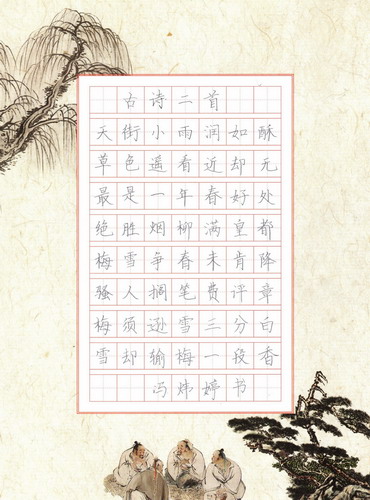 古诗二首
天街小雨润如酥
草色遥看近却无
最是一年春好处
绝胜烟柳满皇都
梅雪争春未肯降
骚人搁笔费评章
梅须逊雪三分白
雪却输梅一段香
冯炜婷书